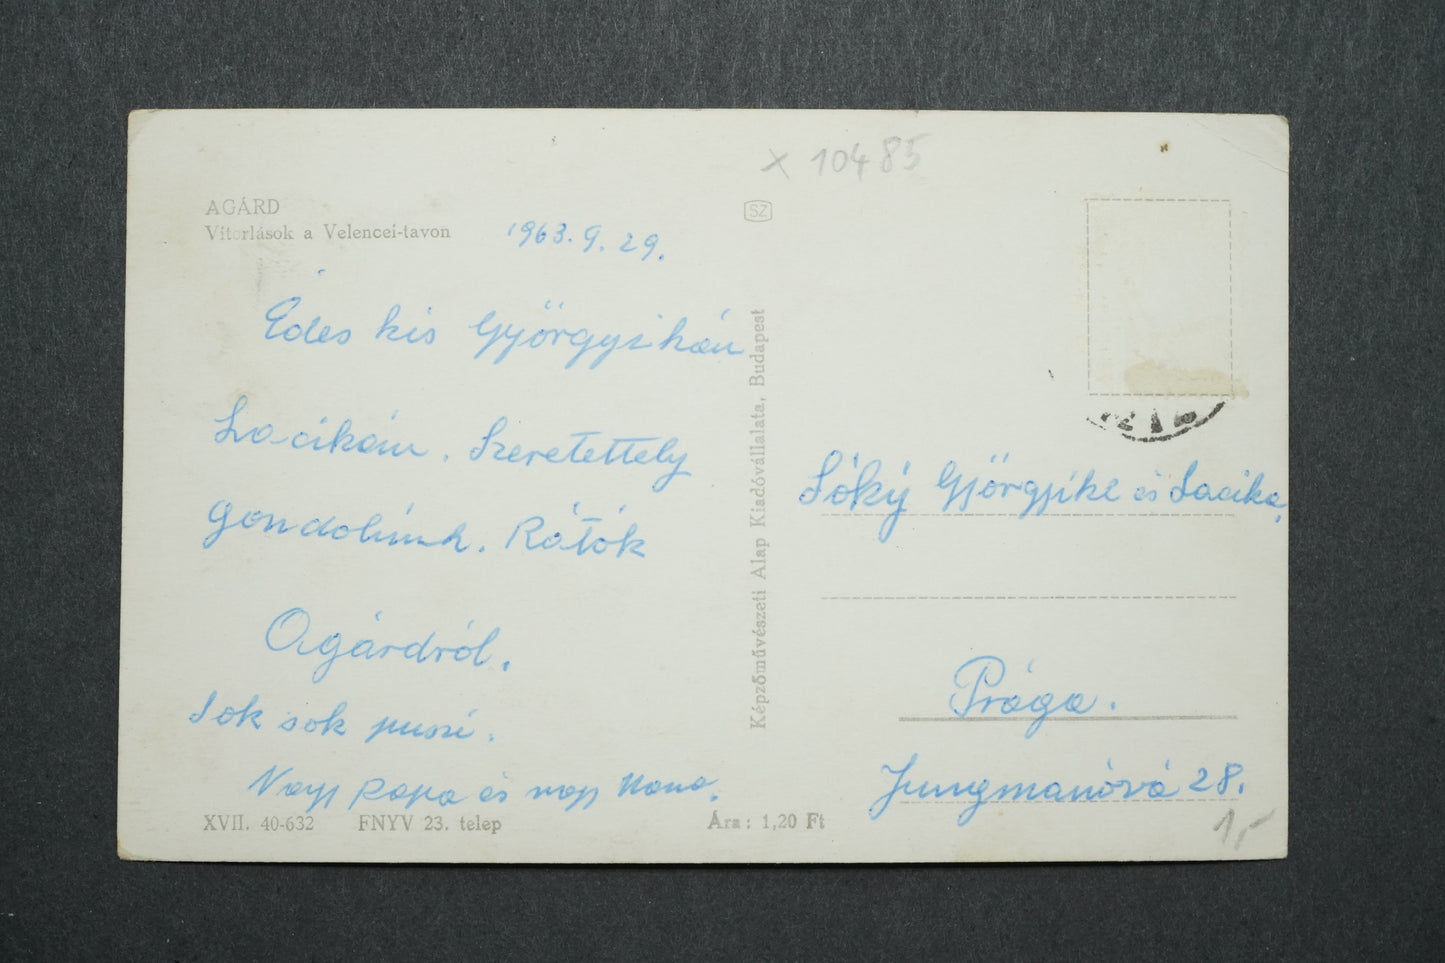 x 10485
AGÁRD
Vitorlások a Velencei-tavon
SZ
1963. 9. 29.
Édes kis Györgyikém
Lacikám. Szeretettely
gondolunk. Rátók
Agárdról.
Sok sok puszi.
Nagy Papa és nagy Mama.
XVII. 40-632 FNYV 23. telep
Ára: 1,20 Ft
Képzőművészeti Alap Kiadóvállalata, Budapest
Sóký Györgyike és Lacika,
Prága.
Jungmanóvá 28.
1,-